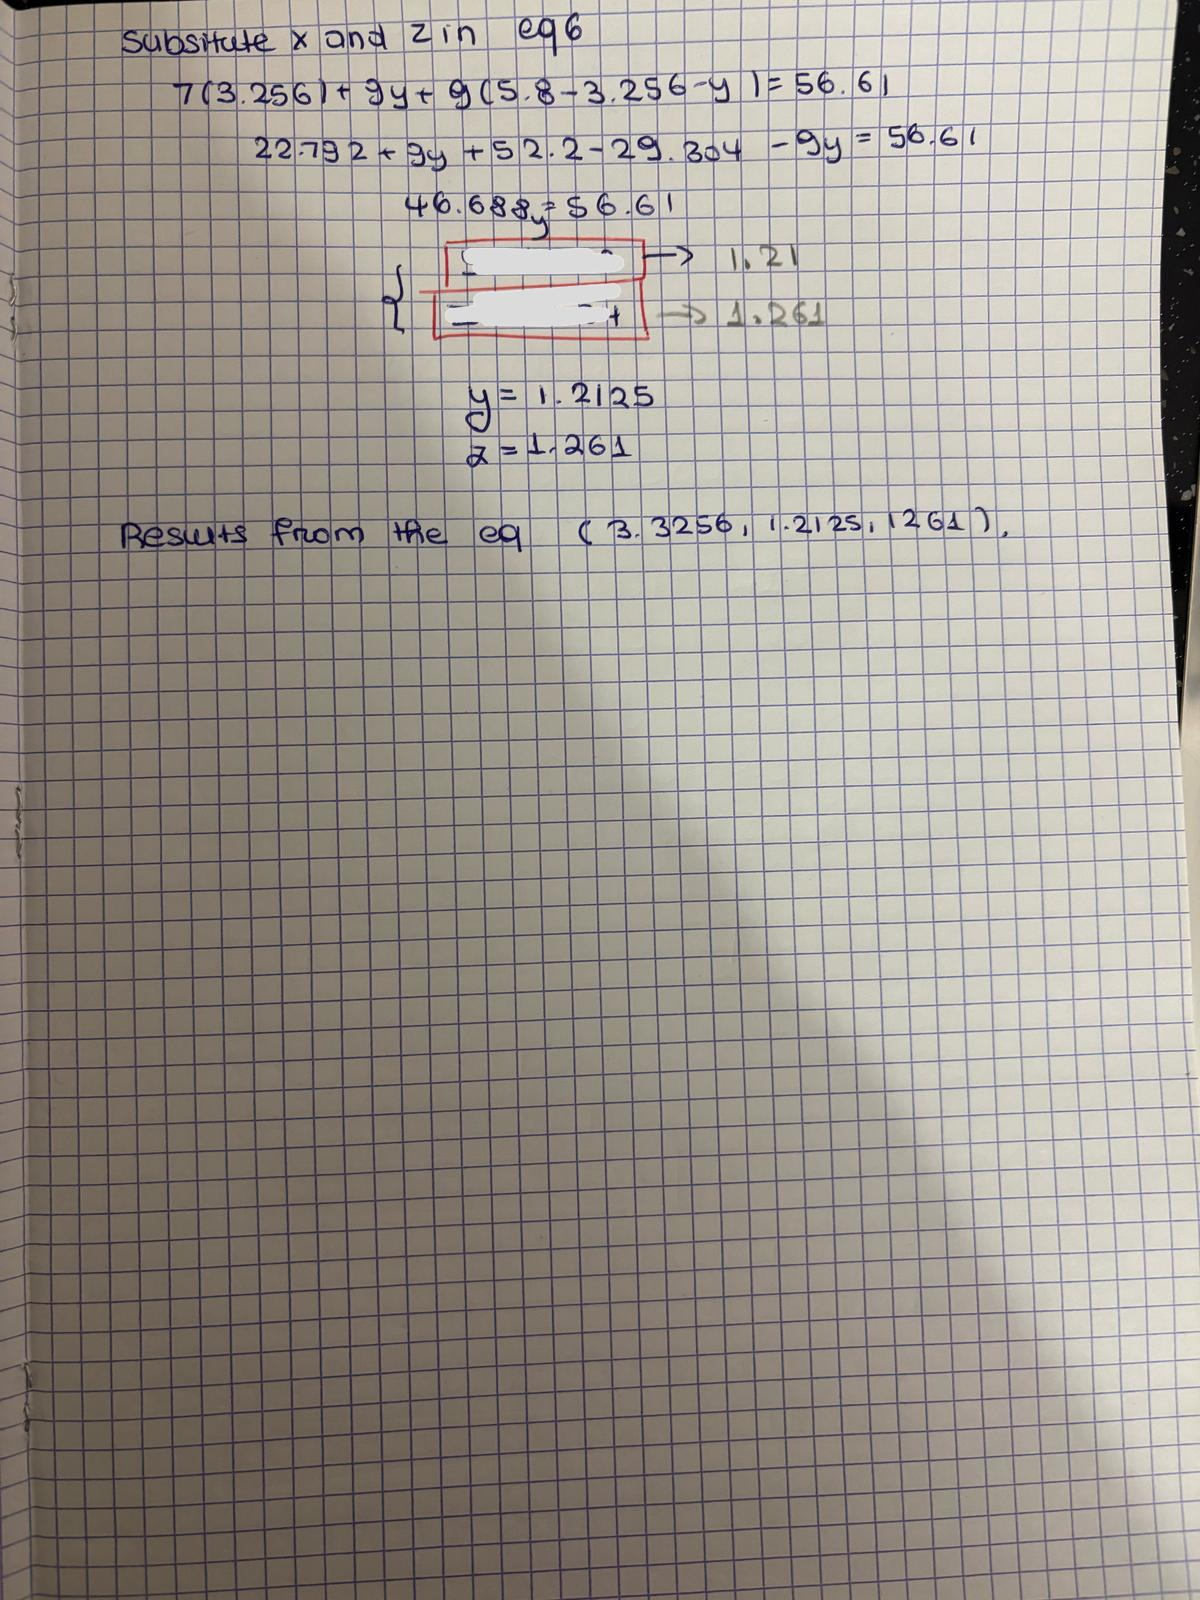 Subsitute x and z in eq6
7(3.256)+9y+9(5.8-3.256-y)=56.61
22.792+9y+52.2-29.304-9y=56.61
46.688y=56.61
→ 1.21
→ 1.261
y=1.2125
z=1.261
Results from the eq (3.3256, 1.2125, 1261).